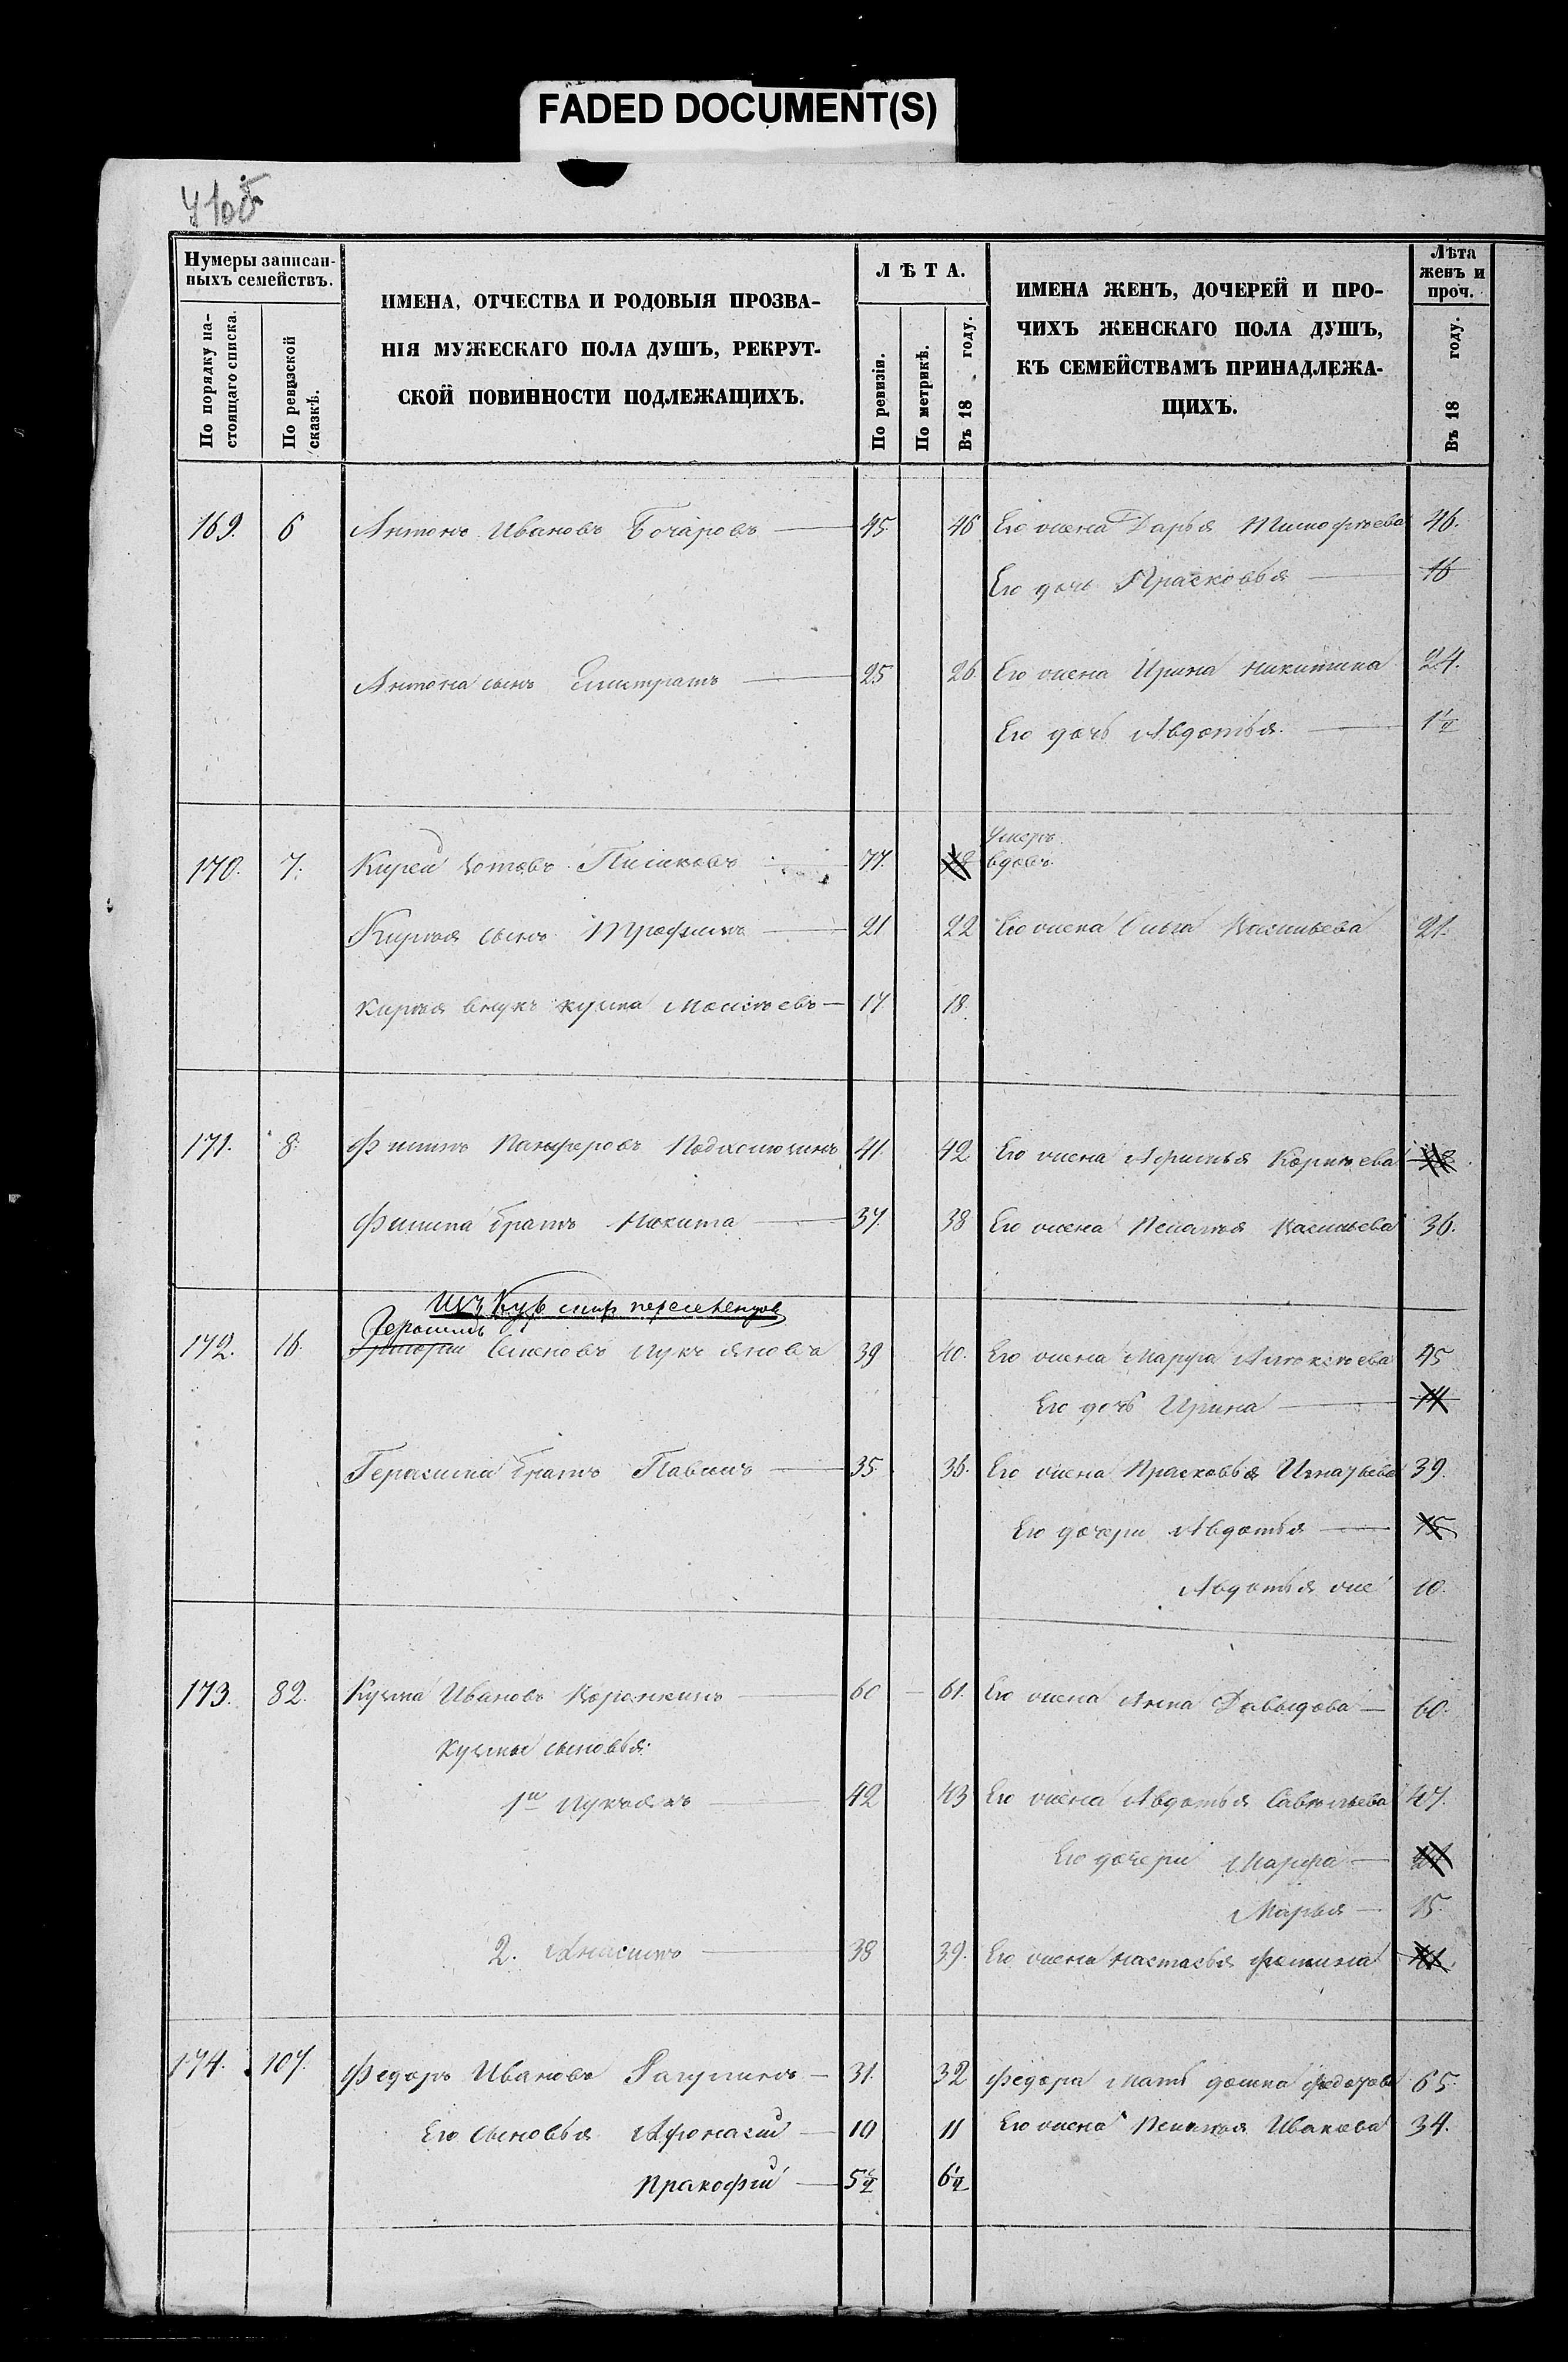 FADED DOCUMENT(S)
Нумеры записан-
ныхъ семействъ.
По порядку на-
стоящаго списка.
По ревизской
сказкѣ.
ИМЕНА, ОТЧЕСТВА И РОДОВЫЯ ПРОЗВА-
НІЯ МУЖЕСКАГО ПОЛА ДУШЪ, РЕКРУТ-
СКОЙ ПОВИННОСТИ ПОДЛЕЖАЩИХЪ.
ЛѢТА.
По ревизіи.
По метрикѣ.
Въ 18 году.
ИМЕНА ЖЕНЪ, ДОЧЕРЕЙ И ПРО-
ЧИХЪ ЖЕНСКАГО ПОЛА ДУШЪ,
КЪ СЕМЕЙСТВАМЪ ПРИНАДЛЕЖА-
ЩИХЪ.
Лѣта
женъ и
проч.
Въ 18 году.
169. 6 Антонъ Ивановъ Бочаровъ 45 46 Его жена Дарья Тимофѣева 46.
Его дочь Прасковья 16
Антона сынъ 25 26. Его жена Ирина Никитина 24.
Его дочь Авдотья. 1½
Умеръ
170. 7. Кирей 77. 78 вдовъ.
Кирѣя сынъ Трофимъ 21 22 Его жена Ольга Васильева 21.
Кирѣя внукъ Кузма Моисѣевъ 17 18.
171. 8. Филипъ Панферовъ 41. 42 Его жена Афимья Корнѣева
Филипа братъ Никита 37. 38 Его жена Пелагѣя Васильева 36.
Изъ переселенцовъ
Герасимъ
172. 16. Григорій Семеновъ Лукъяновъ 39 40. Его жена Марфа Алексѣева 45
Его дочь Ирина 14
Герасима братъ Павелъ 35. 36. Его жена Прасковья Игнатьева 39.
Его дочери Авдотья 15
Авдотья же 10.
173. 82. Кузма Ивановъ 60 61. Его жена Анна Давыдова 60.
Кузмы сыновья:
1й Лукъянъ 42 43 Его жена Авдотья Савельева 47.
Его дочери Марфа
Марья 15.
2. Анисимъ 38 39. Его жена Настасья Фомина
174. 107. Федоръ Ивановъ 31. 32 Федора мать Домна Федотова 65.
Его сыновья Афонасій 10 11 Его жена Пелагѣя Иванова 34.
Прокофій 5½ 6½